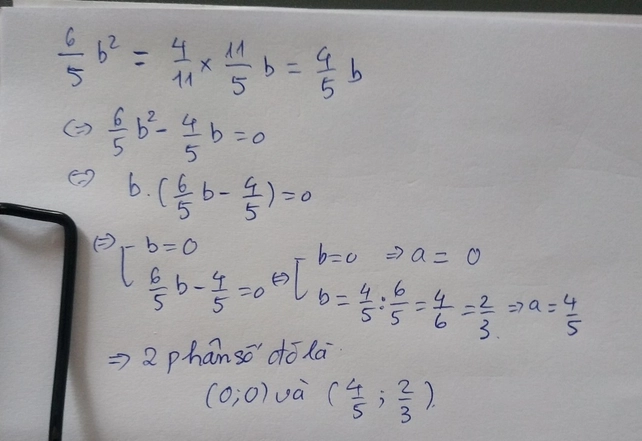 6/5 b² = 4/11 × 11/5 b = 4/5 b
(=) 6/5 b² - 4/5 b = 0
⇔ b.(6/5 b - 4/5) = 0
⇔ [ b = 0 ; 6/5 b - 4/5 = 0 ⇔ [ b = 0 ⇒ a = 0 ; b = 4/5 : 6/5 = 4/6 = 2/3 ⇒ a = 4/5
⇒ 2 phân số đó là
(0;0) và (4/5 ; 2/3).